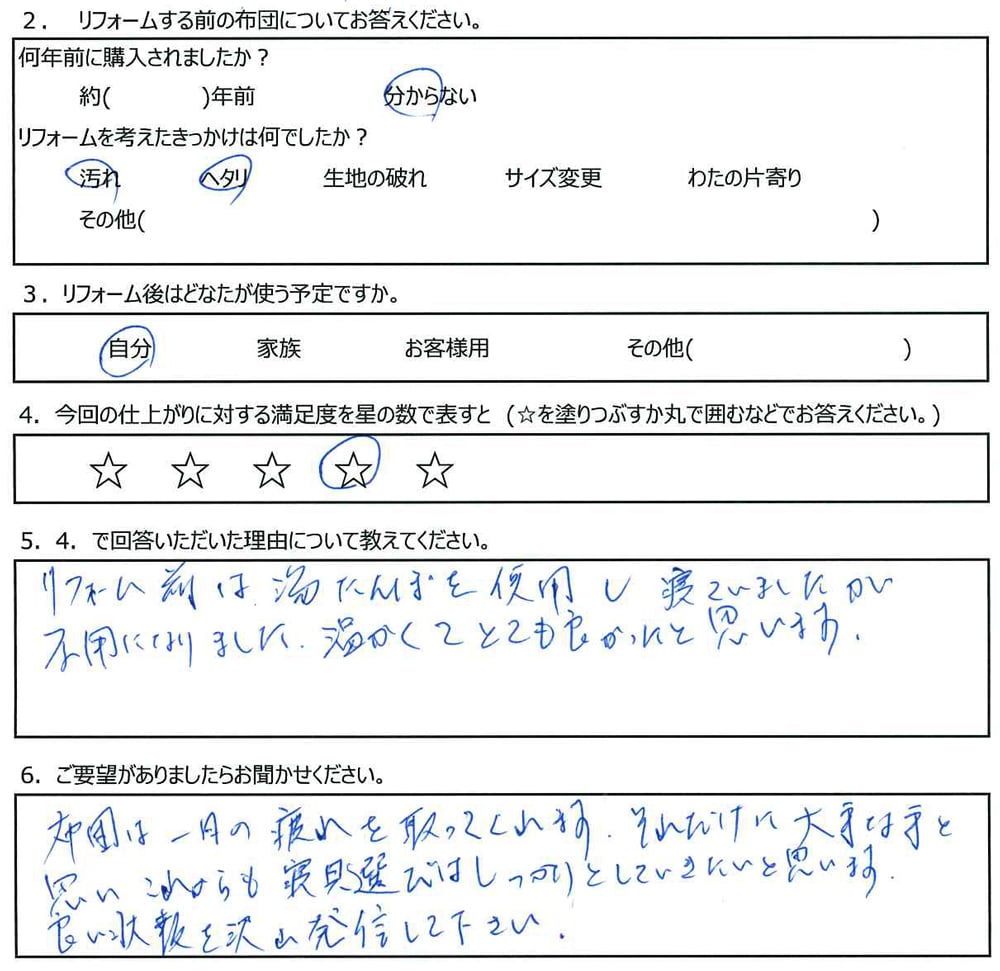 ２． リフォームする前の布団についてお答えください。
何年前に購入されましたか？
約(　　　　)年前　　　　　分からない
リフォームを考えたきっかけは何でしたか？
汚れ　　　ヘタリ　　　生地の破れ　　　サイズ変更　　　わたの片寄り
その他(　　　　　　　　　　　　　　　　　　　　)
３．リフォーム後はどなたが使う予定ですか。
自分　　　家族　　　お客様用　　　その他(　　　　　　　　)
４．今回の仕上がりに対する満足度を星の数で表すと（☆を塗りつぶすか丸で囲むなどでお答えください。）
☆　☆　☆　☆　☆
５．４．で回答いただいた理由について教えてください。
リフォーム前は湯たんぽを使用し寝ていましたが
不用になりました．温かくてとても良かったと思います．
６．ご要望がありましたらお聞かせください。
布団は一日の疲れを取ってくれます．それだけに大事な事と
思いこれからも寝具選びはしっかりとしていきたいと思います．
良い状報を沢山発信して下さい．